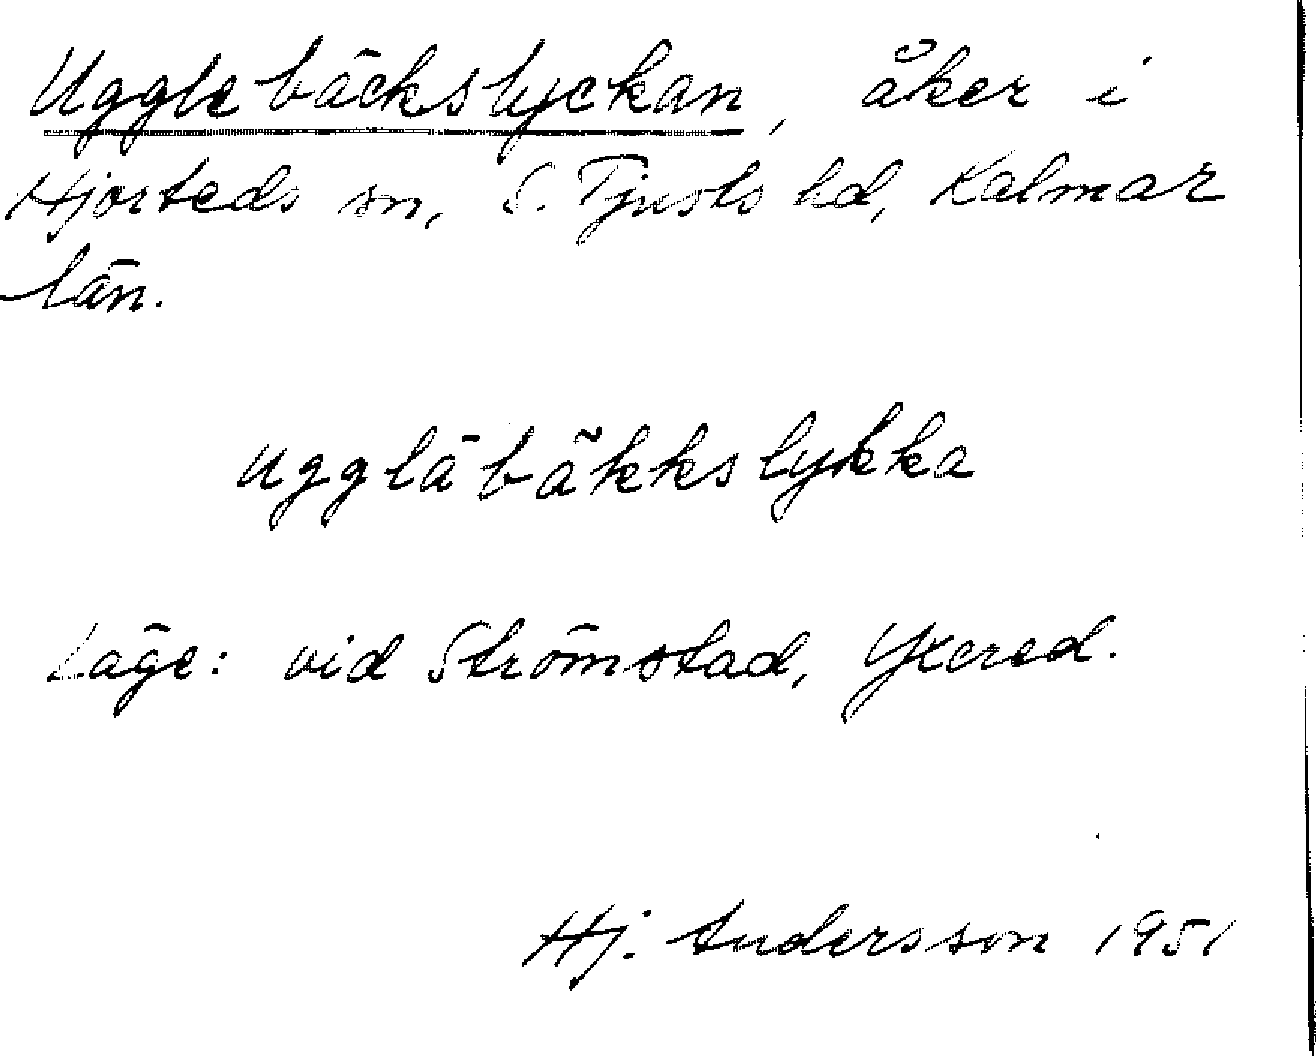 Ugglebäckslyckan, åker i
Hjorteds sn, S. Tjusts hd, Kalmar
län.
uggläbäkkslykka
Läge: vid Strömstad, Yxered.
Hj. Andersson 1951